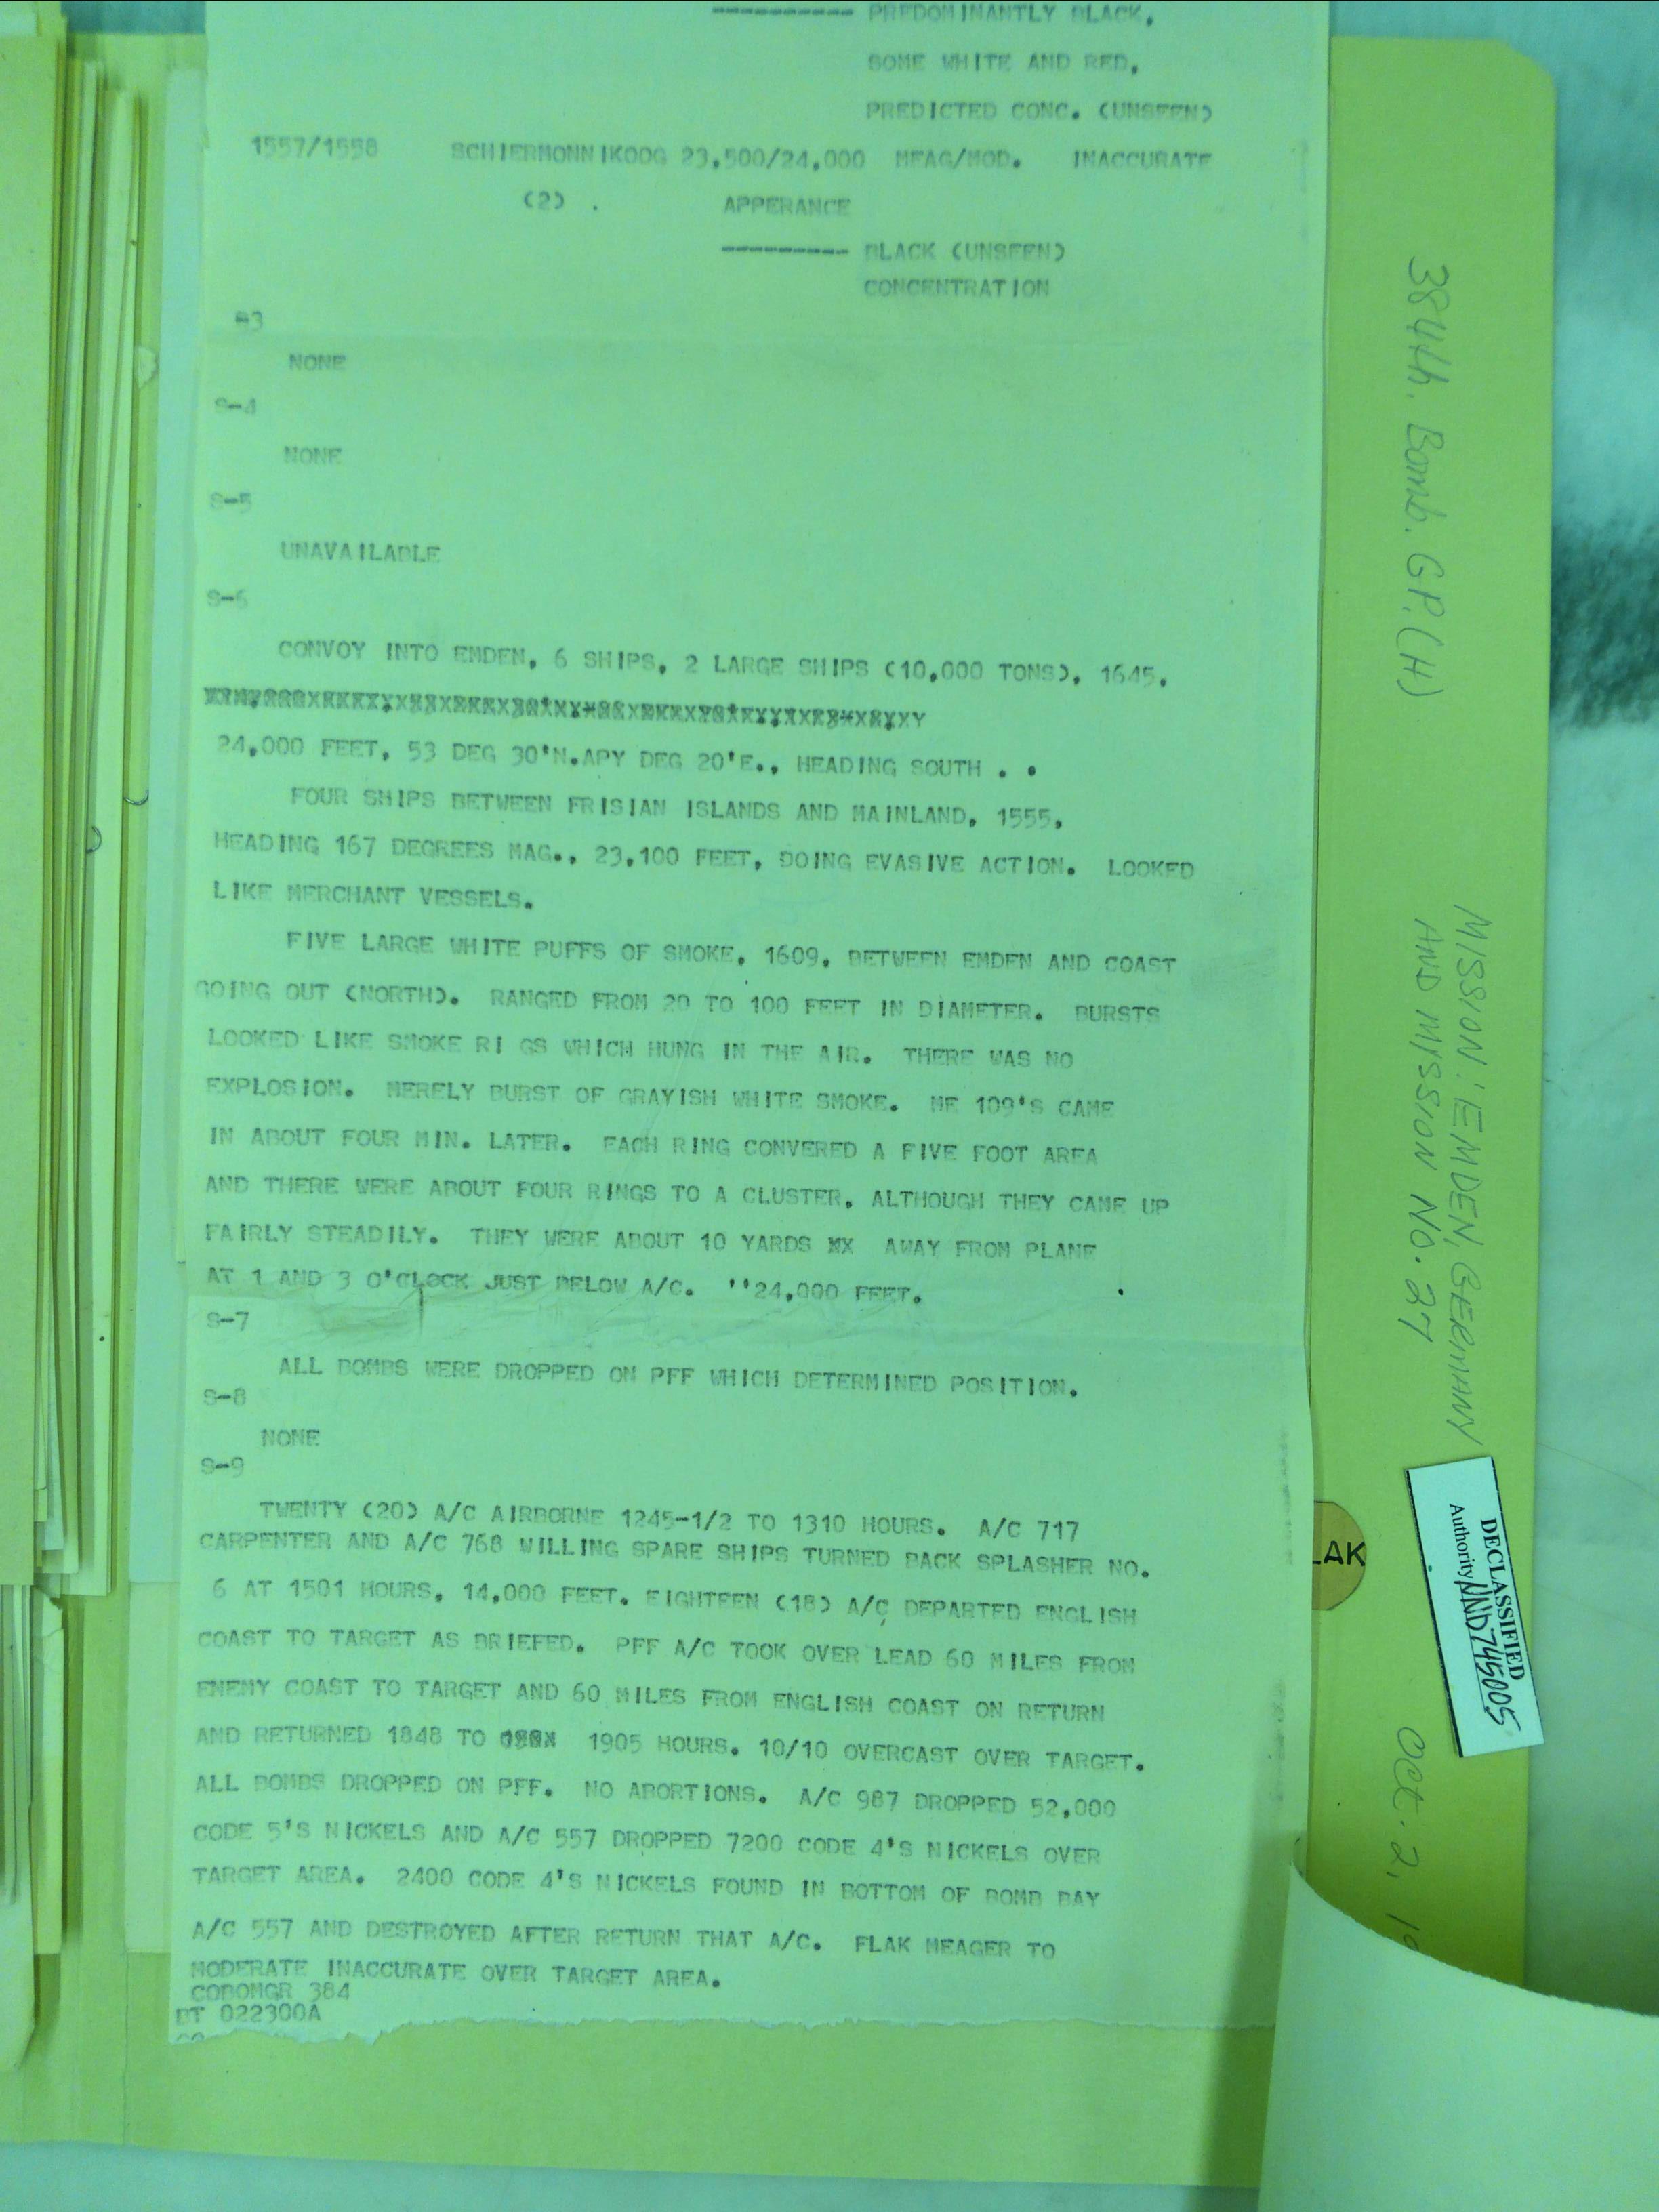 ---------- PREDOMINANTLY BLACK,
SOME WHITE AND RED,
PREDICTED CONC. (UNSEEN)
1557/1558 SCHIERMONNIKOOG 23,500/24,000 MEAG/MOD. INACCURATE
(2) . APPERANCE
--------- BLACK (UNSEEN)
CONCENTRATION
NONE
S-4
NONE
S-5
UNAVAILABLE
S-6
CONVOY INTO EMDEN, 6 SHIPS, 2 LARGE SHIPS (10,000 TONS), 1645,
24,000 FEET, 53 DEG 30'N.APY DEG 20'E., HEADING SOUTH . .
FOUR SHIPS BETWEEN FRISIAN ISLANDS AND MAINLAND, 1555,
HEADING 167 DEGREES MAG., 23,100 FEET, DOING EVASIVE ACTION. LOOKED
LIKE MERCHANT VESSELS.
FIVE LARGE WHITE PUFFS OF SMOKE, 1609, BETWEEN EMDEN AND COAST
GOING OUT (NORTH). RANGED FROM 20 TO 100 FEET IN DIAMETER. BURSTS
LOOKED LIKE SMOKE RI GS WHICH HUNG IN THE AIR. THERE WAS NO
EXPLOSION. MERELY BURST OF GRAYISH WHITE SMOKE. ME 109'S CAME
IN ABOUT FOUR MIN. LATER. EACH RING CONVERED A FIVE FOOT AREA
AND THERE WERE ABOUT FOUR RINGS TO A CLUSTER, ALTHOUGH THEY CAME UP
FAIRLY STEADILY. THEY WERE ABOUT 10 YARDS AWAY FROM PLANE
AT 1 AND 3 O'CLOCK JUST BELOW A/C. ''24,000 FEET.
S-7
ALL BOMBS WERE DROPPED ON PFF WHICH DETERMINED POSITION.
S-8
NONE
S-9
TWENTY (20) A/C AIRBORNE 1245-1/2 TO 1310 HOURS. A/C 717
CARPENTER AND A/C 768 WILLING SPARE SHIPS TURNED BACK SPLASHER NO.
6 AT 1501 HOURS, 14,000 FEET. EIGHTEEN (18) A/C DEPARTED ENGLISH
COAST TO TARGET AS BRIEFED. PFF A/C TOOK OVER LEAD 60 MILES FROM
ENEMY COAST TO TARGET AND 60 MILES FROM ENGLISH COAST ON RETURN
AND RETURNED 1848 TO 1905 HOURS. 10/10 OVERCAST OVER TARGET.
ALL BOMBS DROPPED ON PFF. NO ABORTIONS. A/C 987 DROPPED 52,000
CODE 5'S NICKELS AND A/C 557 DROPPED 7200 CODE 4'S NICKELS OVER
TARGET AREA. 2400 CODE 4'S NICKELS FOUND IN BOTTOM OF BOMB BAY
A/C 557 AND DESTROYED AFTER RETURN THAT A/C. FLAK MEAGER TO
MODERATE INACCURATE OVER TARGET AREA.
COBOMGR 384
BT 022300A
384th. Bomb. GP.(H)
MISSION: EMDEN, GERMANY
AND MISSION NO. 27
Oct. 2, 19
DECLASSIFIED
Authority NND745005
LAK